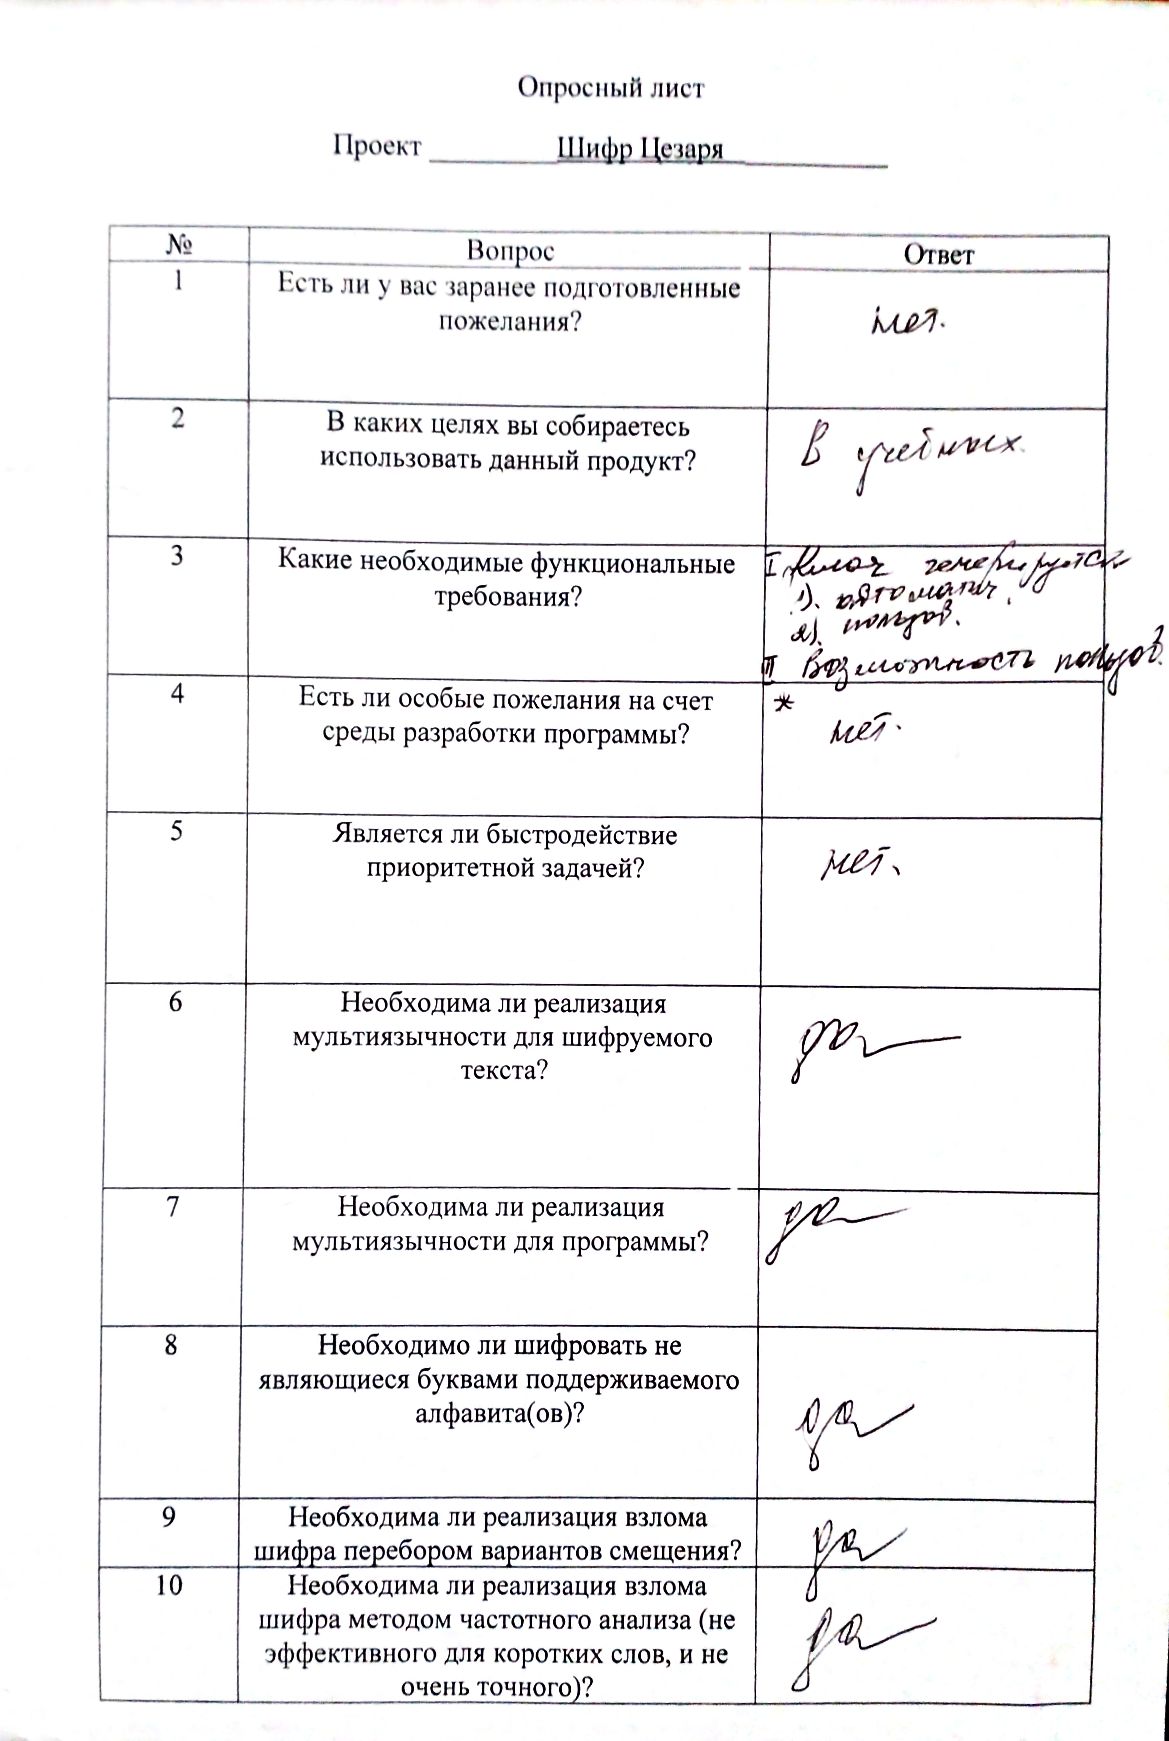 Опросный лист
Проект Шифр Цезаря
№ Вопрос Ответ
1 Есть ли у вас заранее подготовленные
пожелания?
нет.
2 В каких целях вы собираетесь
использовать данный продукт?
В учебных.
3 Какие необходимые функциональные
требования?
I. Ключ генерируется
1). автоматич.
2). пользов.
II Возможность пользов.
4 Есть ли особые пожелания на счет
среды разработки программы?
*
нет.
5 Является ли быстродействие
приоритетной задачей?
нет.
6 Необходима ли реализация
мультиязычности для шифруемого
текста?
да
7 Необходима ли реализация
мультиязычности для программы?
да
8 Необходимо ли шифровать не
являющиеся буквами поддерживаемого
алфавита(ов)?
да
9 Необходима ли реализация взлома
шифра перебором вариантов смещения?
да
10 Необходима ли реализация взлома
шифра методом частотного анализа (не
эффективного для коротких слов, и не
очень точного)?
да